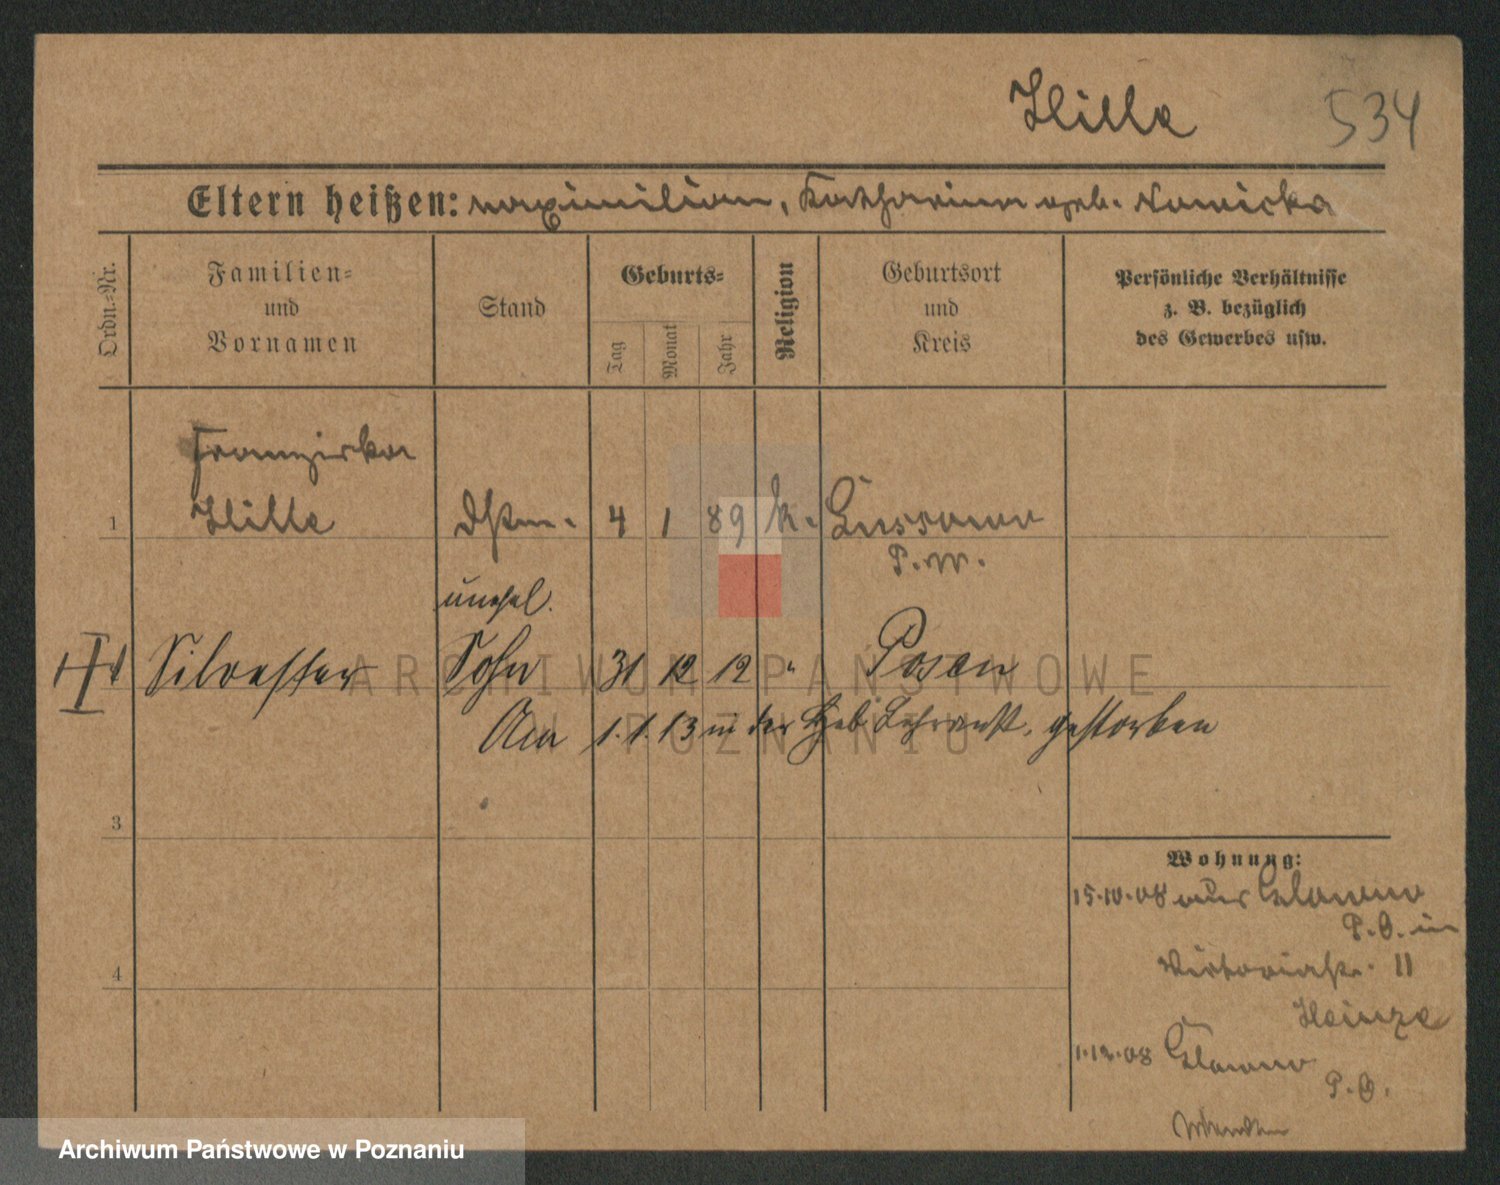 Hille 534
Eltern heißen: Maximilian, Katharina geb. Nowicka
Ordn.-Nr.
Familien-
und
Vornamen
Stand
Geburts-
Tag
Monat
Jahr
Religion
Geburtsort
und
Kreis
Persönliche Verhältnisse
z. B. bezüglich
des Gewerbes usw.
Franziska
1 Hille Dstm. 4 1 89 k. Gussowo
P. W.
unehel.
Silvester Sohn 31 12 12 " Posen
Am 1.1.13 in der Heb. Lehranst. gestorben
3
4
Wohnung:
15.10.08 aus Glowno
P. O. in
Viktoriastr. 11
Heinze
1.12.08 Glowno
P. O.
ARCHIWUM PAŃSTWOWE
W POZNANIU
Archiwum Państwowe w Poznaniu